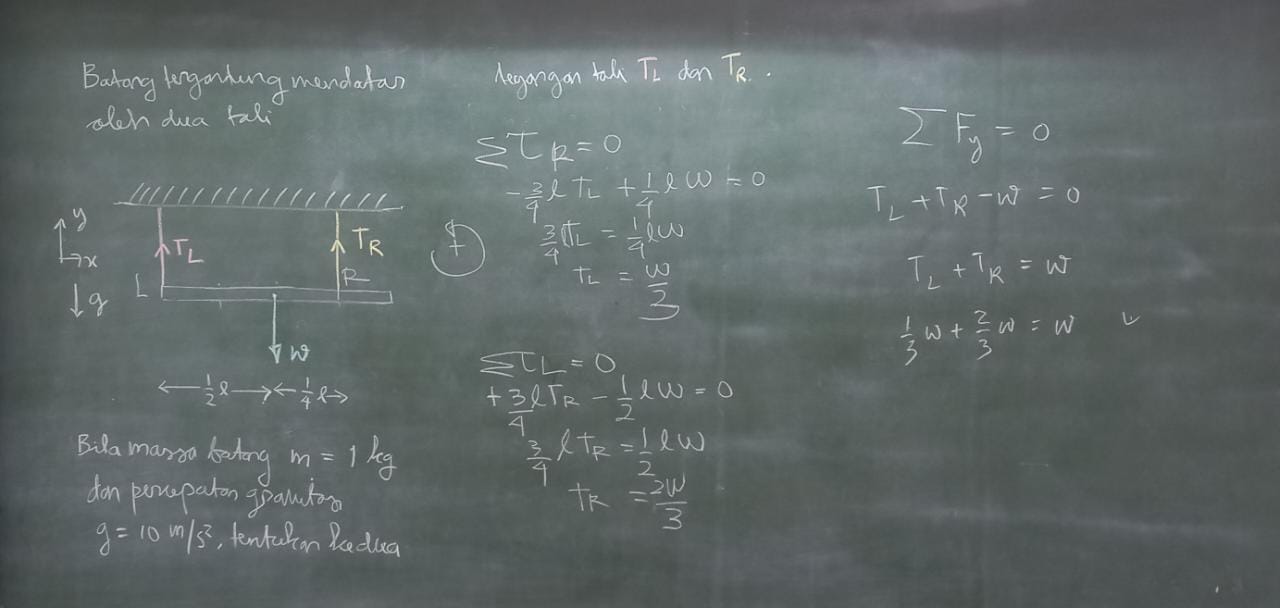 Batang tergantung mendatar
oleh dua tali
y
x
g
T_L
T_R
L
R
w
½ℓ ¼ℓ
Bila massa batang m = 1 kg
dan percepatan gravitasi
g = 10 m/s², tentukan kedua
tegangan tali T_L dan T_R.
Στ_R = 0
-¾ℓ T_L + ¼ℓ W = 0
¾ℓT_L = ¼ℓW
T_L = W/3
+
Στ_L = 0
+¾ℓT_R - ½ℓW = 0
¾ℓT_R = ½ℓW
T_R = 2W/3
ΣF_y = 0
T_L + T_R - W = 0
T_L + T_R = W
⅓W + ⅔W = W ✓